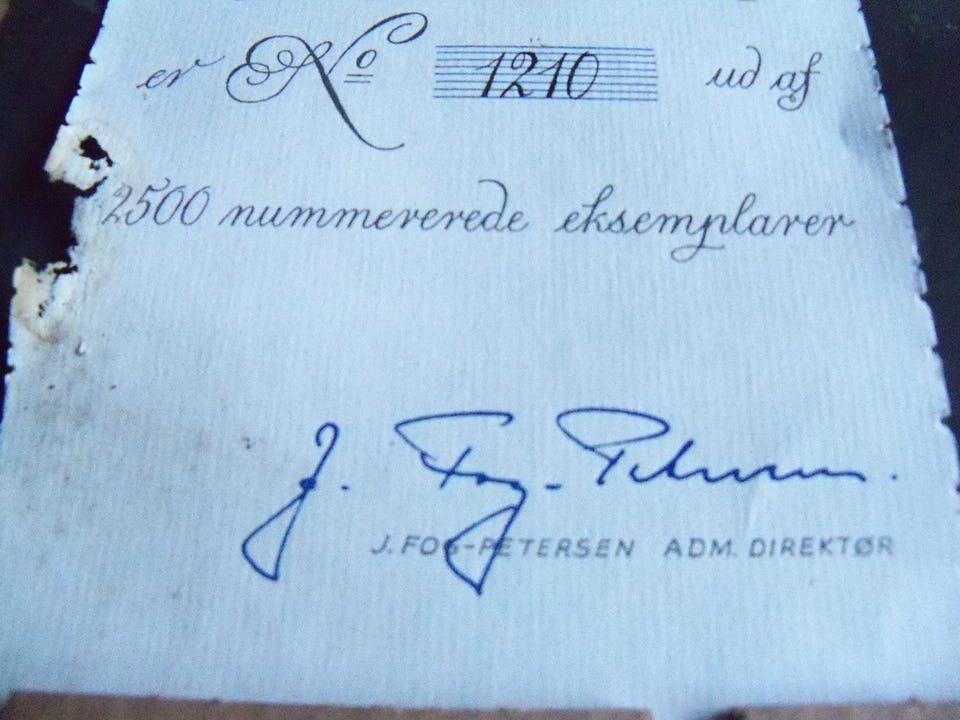 er No 1210 ud af
2500 nummererede eksemplarer
J. Fog-Petersen.
J. FOG-PETERSEN ADM. DIREKTØR